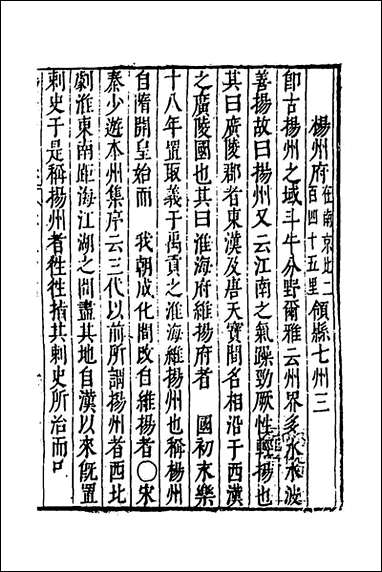 楊州府在南京北二百四十五里領縣七州三
卽古揚州之域斗牛分野爾雅云州界多水水波
善揚故曰揚州又云江南之氣躁勁厥性輕揚也
其曰廣陵郡者東漢及唐天寶間名相沿于西漢
之廣陵國也其曰淮海府維揚府者 國初末樂
十八年置取義于禹貢之淮海維揚州也稱楊州
自隋開皇始而 我朝成化間改台維揚者○宋
秦少遊本州集序云三代以前所謂揚州者西北
劇淮東南距海江湖之間盡其地自漢以來旣置
刺史于是稱揚州者徃徃指其刺史所治而